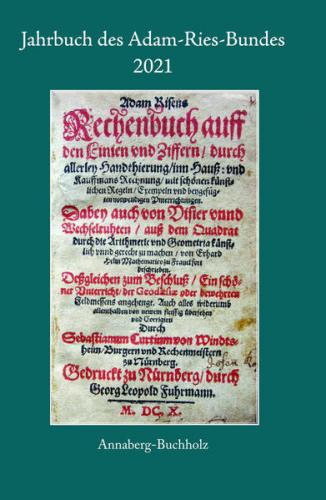 Jahrbuch des Adam-Ries-Bundes
2021
Adam Risens
Rechenbuch auff
den Linien vnd Ziffern / durch
allerley Handthierung / inn Hauß: vnd
Kauffmans Rechnung / mit schönen künst-
lichen Regeln / Exempeln vnd beygefüg-
ten notwendigen Vnterrichtungen.
Dabey auch von Visier vnnd
Wechselruhten / auß dem Quadrat
durch die Arithmetic vnd Geometria künst-
lich vnnd gerecht zu machen / von Erhard
Helm Mathematico zu Franckfurt
beschrieben.
Deßgleichen zum Beschluß / Ein schö-
ner Vnterricht / der Geodaesiae oder bewehrten
Feldmessens angehengt. Auch alles widerumb
allenthalben von newem fleissig übersehen
vnd Corrigirt
Durch
Sebastianum Curtium von Windts-
heim / Burgern vnd Rechenmeistern
zu Nürnberg.
Gedruckt zu Nürnberg / durch
Georg Leopold Fuhrmann.
M. DC. X.
Annaberg-Buchholz